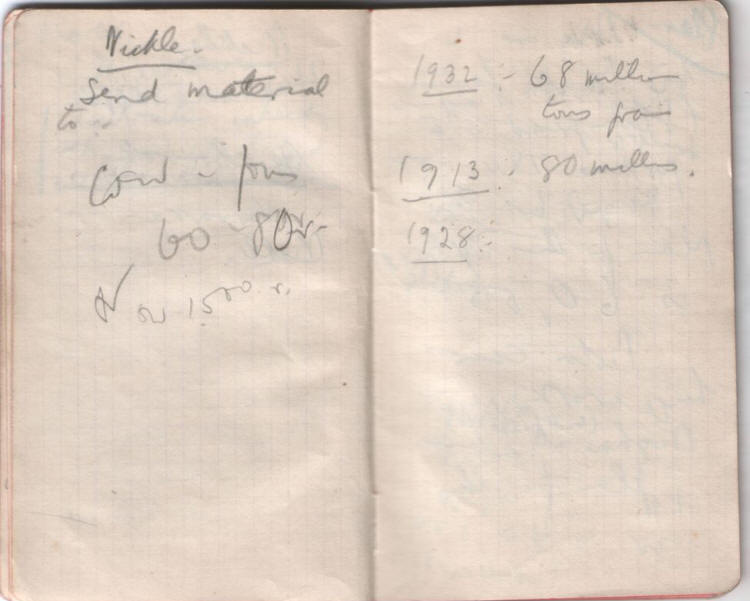 Nickle.
Send material
to :-
Cow - form
60 - 80r.
Now 1500 r.
1932 :- 68 million
tons grain
1913 :- 80 millns.
1928 :-